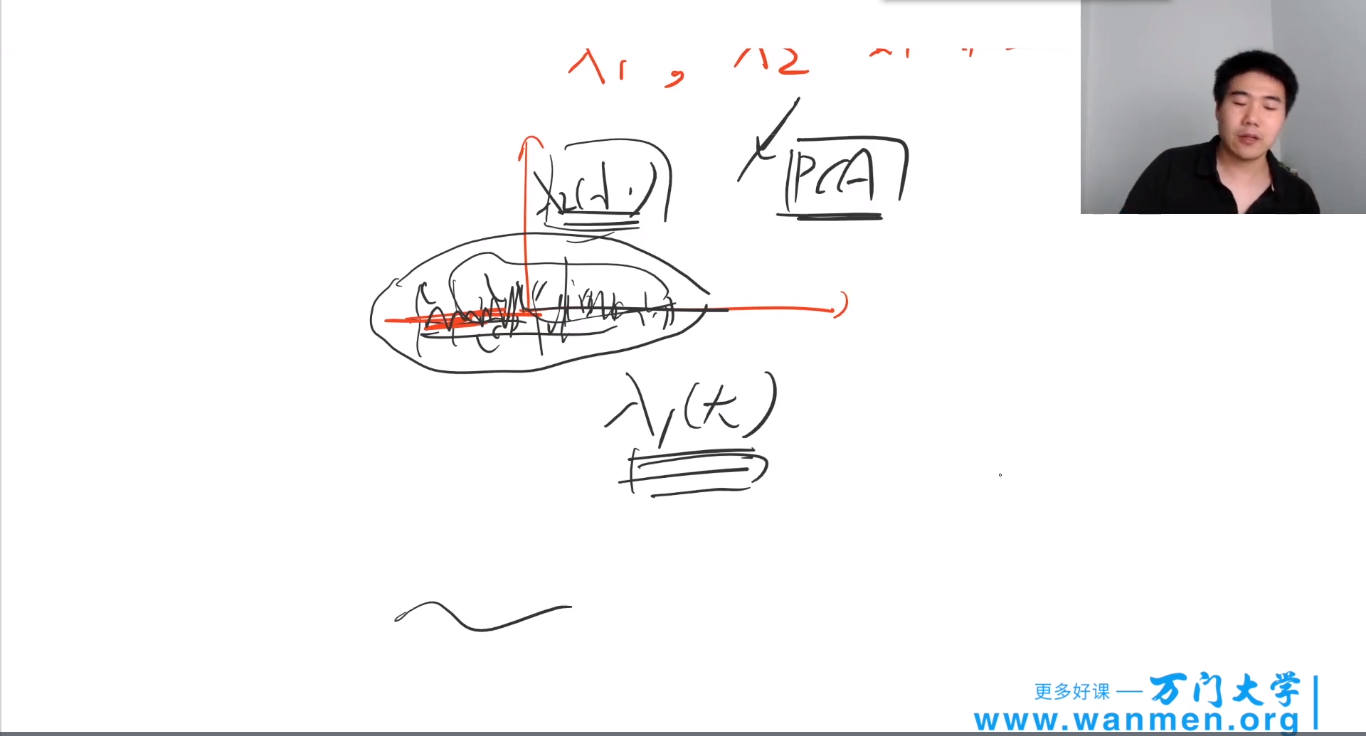 λ1 , λ2
λ2(小)
PCA
λ1(大)
更多好课 — 万门大学
www.wanmen.org